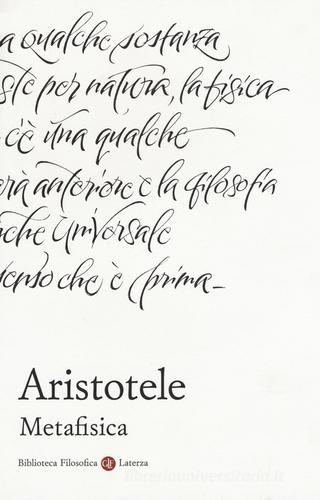 a qualche sostanza
ste per natura, la fisica
c'è una qualche
rà anteriore è la filosofia
che universale
senso che è prima_
Aristotele
Metafisica
Biblioteca Filosofica GLF Laterza
libreriauniversitaria.it